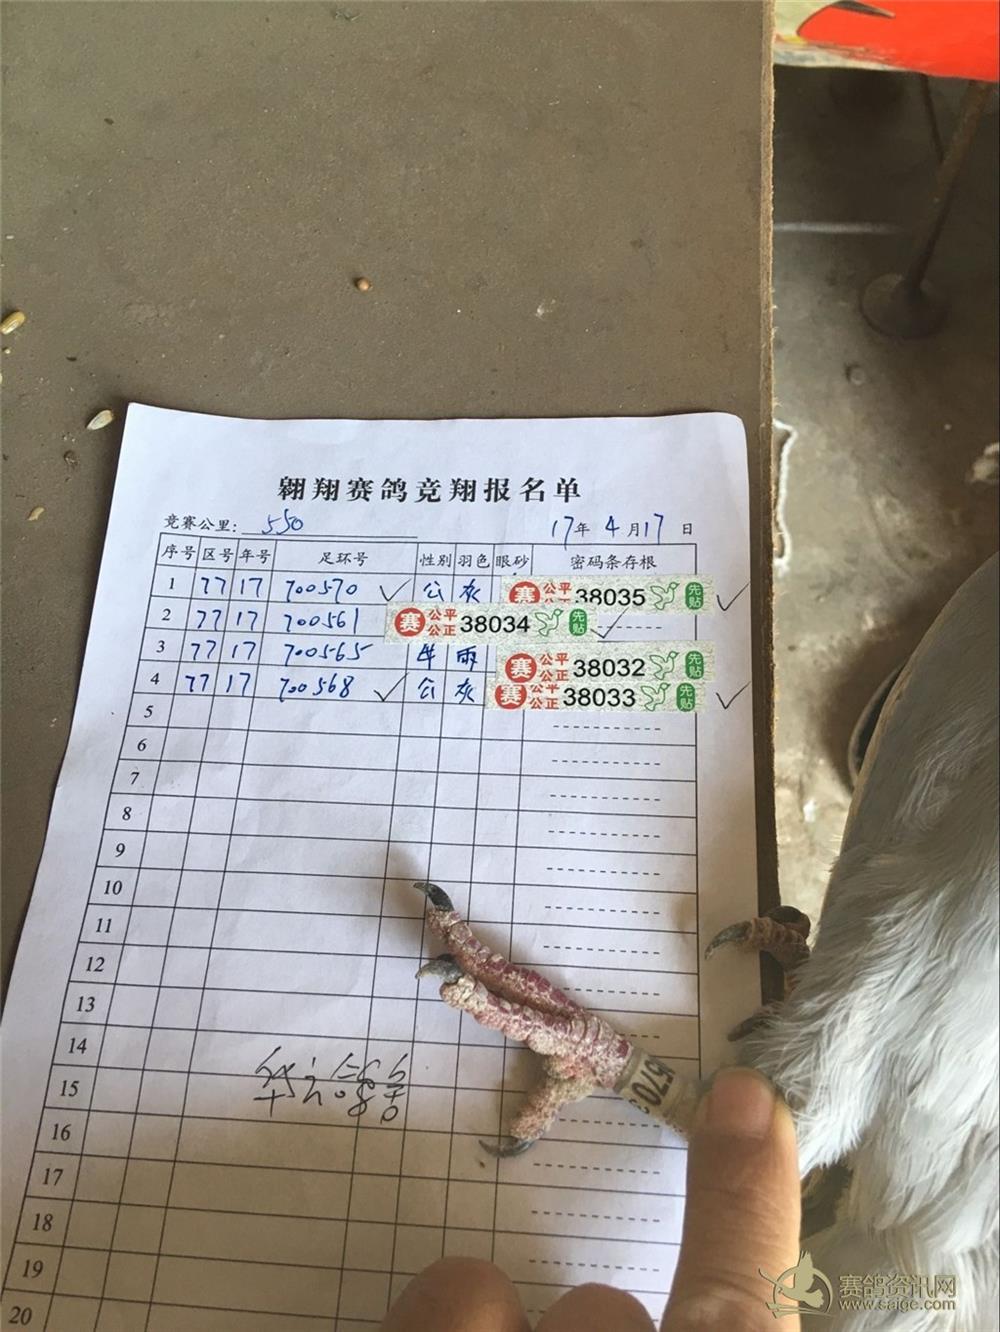 翱翔赛鸽竞翔报名单
竞赛公里: 550 17年 4月17日
序号 区号 年号 足环号 性别 羽色 眼砂 密码条存根
1 77 17 700570 ✓ 公 灰 赛 公平公正 38035 先贴 ✓
2 77 17 700561 赛 公平公正 38034 先贴 ✓
3 77 17 700565 牛 雨 赛 公平公正 38032 先贴
4 77 17 700568 ✓ 公 灰 赛 公平公正 38033 先贴 ✓
5
6
7
8
9
10
11
12
13
14
15
16
17
18
19
20
570
赛鸽资讯网
www.saige.com